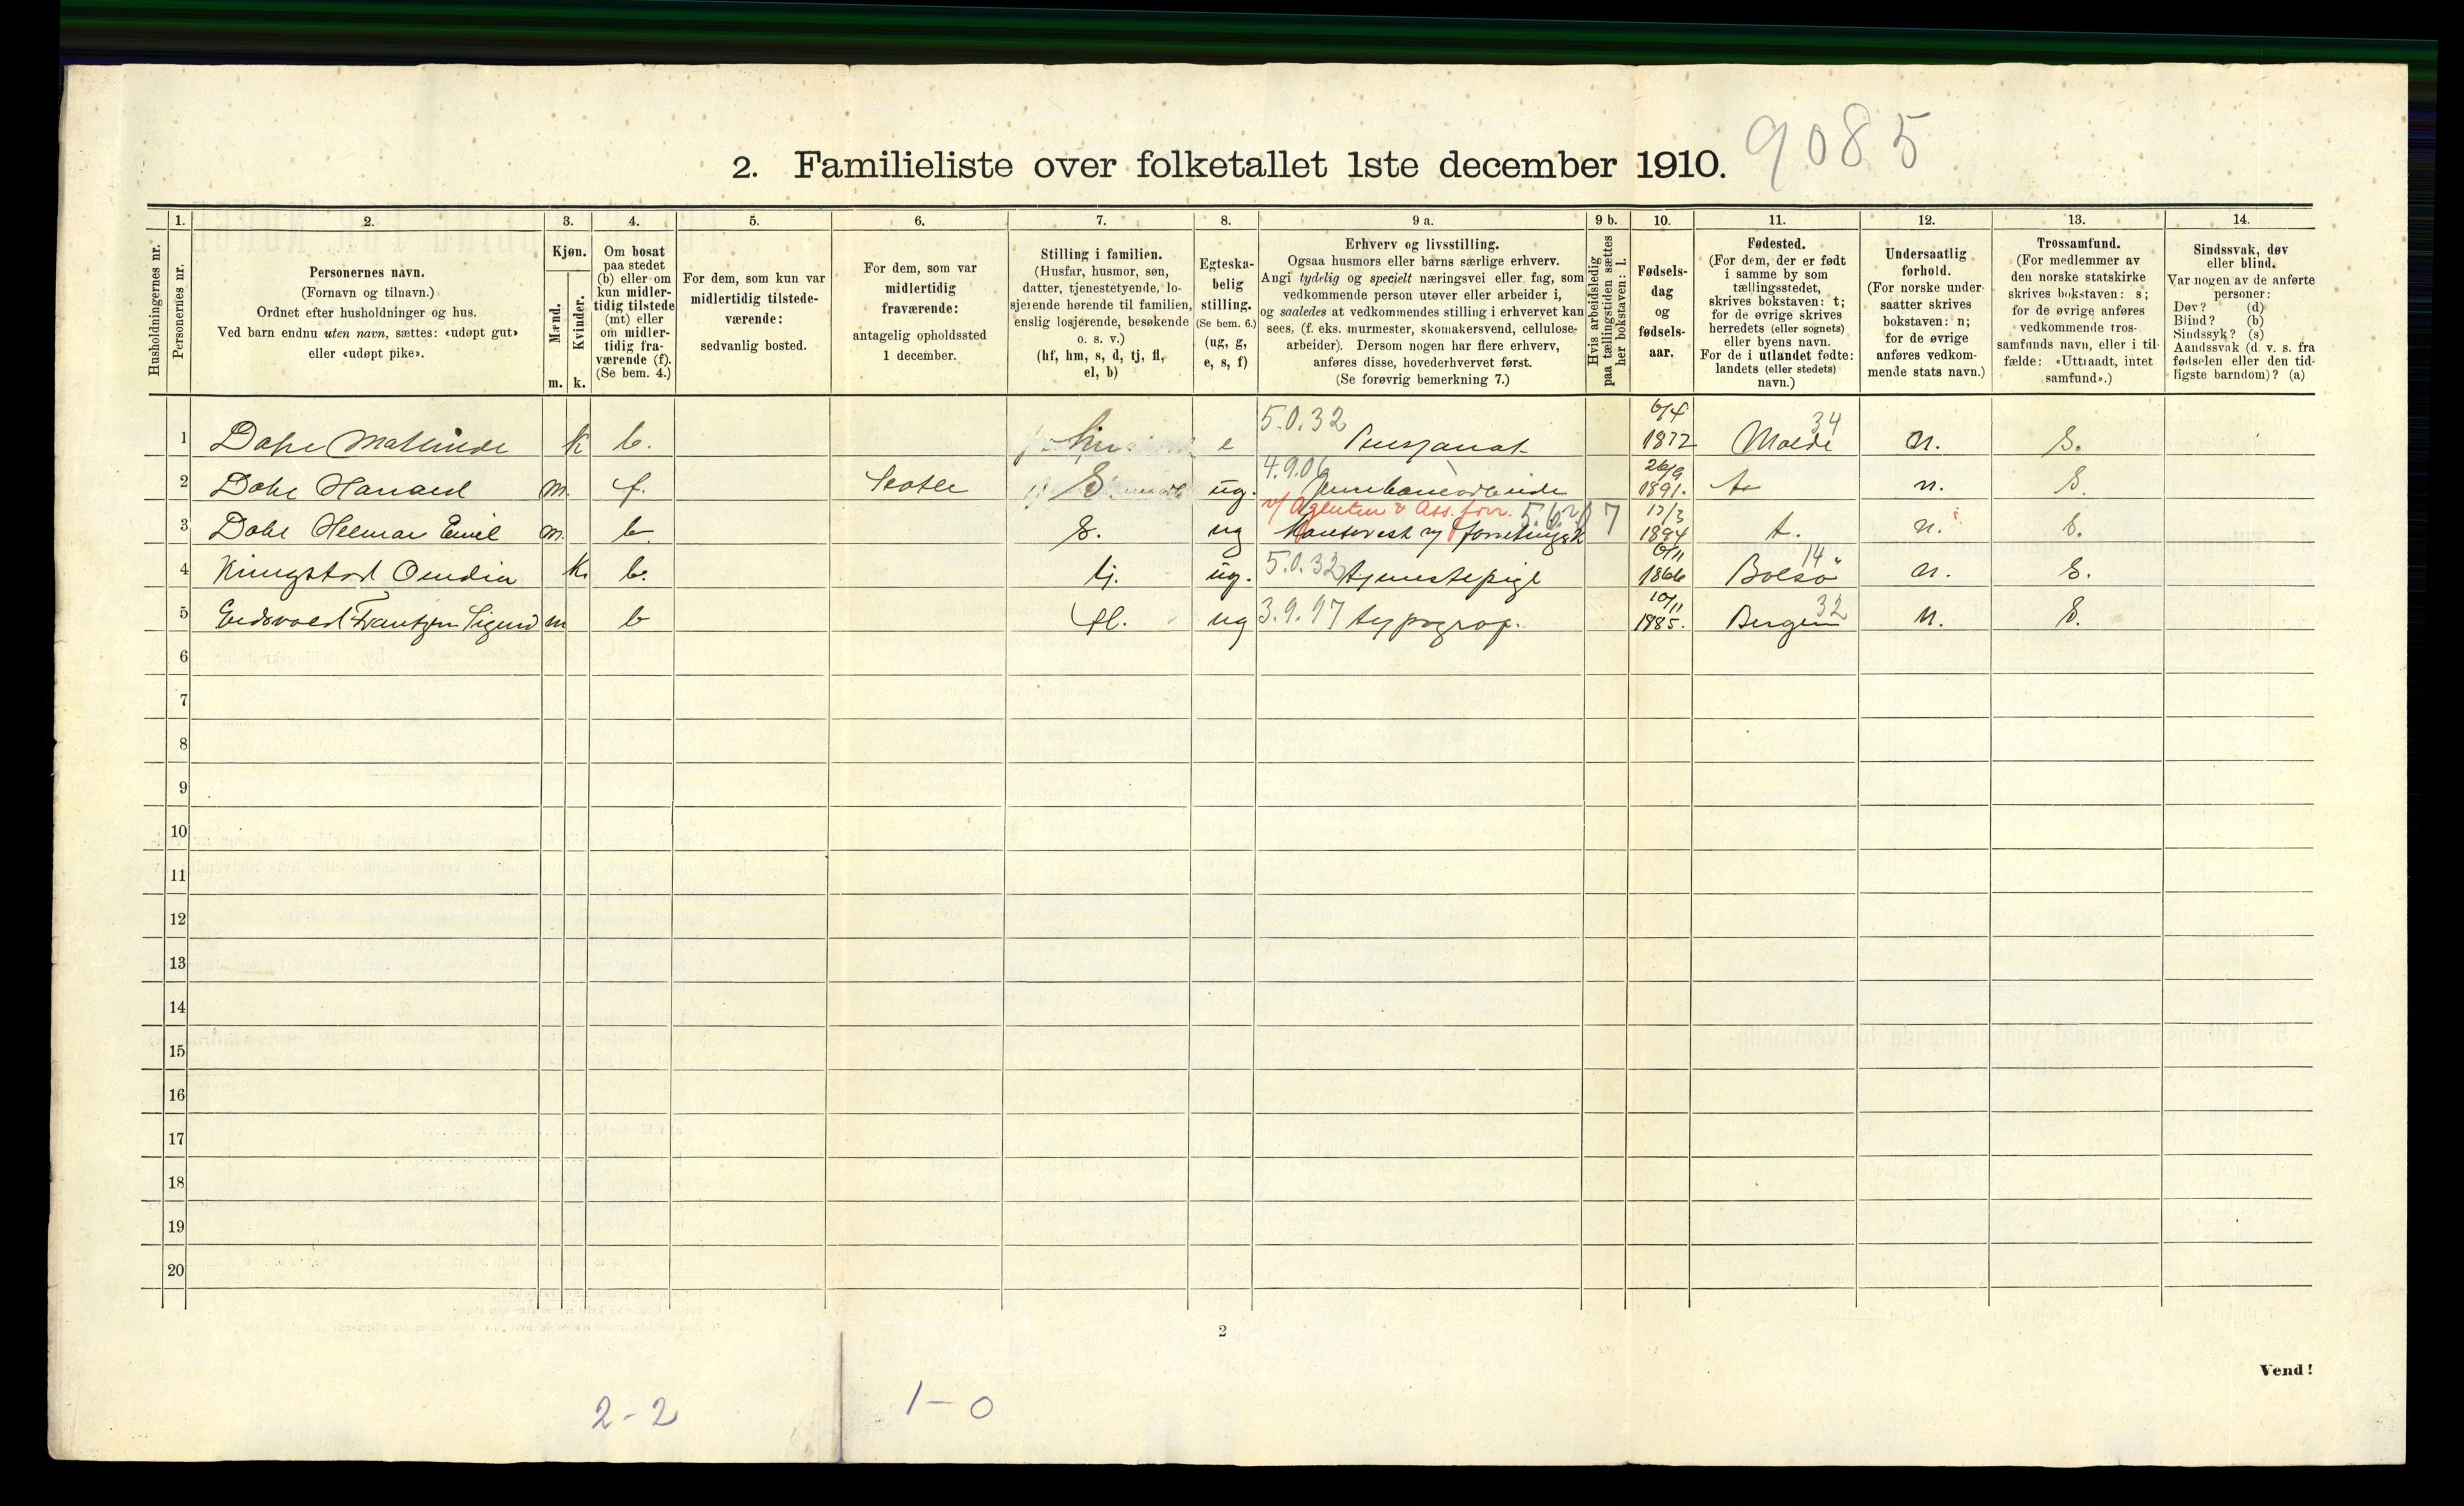 9085
2. Familieliste over folketallet 1ste december 1910.
Husholdningernes nr.
1. Personernes nr.
2. Personernes navn.
(Fornavn og tilnavn.)
Ordnet efter husholdninger og hus.
Ved barn endnu uten navn, sættes: «udøpt gut»
eller «udøpt pike».
3. Kjøn.
Mænd. m.
Kvinder. k.
4. Om bosat
paa stedet
(b) eller om
kun midler-
tidig tilstede
(mt) eller
om midler-
tidig fra-
værende (f).
(Se bem. 4.)
5. For dem, som kun var
midlertidig tilstede-
værende:
sedvanlig bosted.
6. For dem, som var
midlertidig
fraværende:
antagelig opholdssted
1 december.
7. Stilling i familien.
(Husfar, husmor, søn,
datter, tjenestetyende, lo-
sjerende hørende til familien,
enslig losjerende, besøkende
o. s. v.)
(hf, hm, s, d, tj, fl,
el, b)
8. Egteska-
belig
stilling.
(Se bem. 6.)
(ug, g,
e, s, f)
9 a. Erhverv og livsstilling.
Ogsaa husmors eller barns særlige erhverv.
Angi tydelig og specielt næringsvei eller fag, som
vedkommende person utøver eller arbeider i,
og saaledes at vedkommendes stilling i erhvervet kan
sees, (f. eks. murmester, skomakersvend, cellulose-
arbeider). Dersom nogen har flere erhverv,
anføres disse, hovederhvervet først.
(Se forøvrig bemerkning 7.)
9 b. Hvis arbeidsledig
paa tællingstiden sættes
her bokstaven: l.
10. Fødsels-
dag
og
fødsels-
aar.
11. Fødested.
(For dem, der er født
i samme by som
tællingsstedet,
skrives bokstaven: t;
for de øvrige skrives
herredets (eller sognets)
eller byens navn.
For de i utlandet fødte:
landets (eller stedets)
navn.)
12. Undersaatlig
forhold.
(For norske under-
saatter skrives
bokstaven: n;
for de øvrige
anføres vedkom-
mende stats navn.)
13. Trossamfund.
(For medlemmer av
den norske statskirke
skrives bokstaven: s;
for de øvrige anføres
vedkommende tros-
samfunds navn, eller i til-
fælde: «Uttraadt, intet
samfund».)
14. Sindssvak, døv
eller blind.
Var nogen av de anførte
personer:
Døv? (d)
Blind? (b)
Sindssyk? (s)
Aandssvak (d. v. s. fra
fødselen eller den tid-
ligste barndom)? (a)
1 k b. e 5.0.32 6/4 1872 Molde 34 n. S.
2 m. f. S ug. 4.9.06 26/9 1891. t n. S.
3 Emil m. b. S. ug 17/3 1894 t. n. S.
4 k. b. tj. ug. 5.0.32 tjenestepige 6/11 1866 Bolsø 14 n. S.
5 Frantzen m b fl. ug 3.9.97 typograf. 10/11 1885. Bergen 32 n. S.
6
7
8
9
10
11
12
13
14
15
16
17
18
19
20
2
Vend!
2-2 1-0